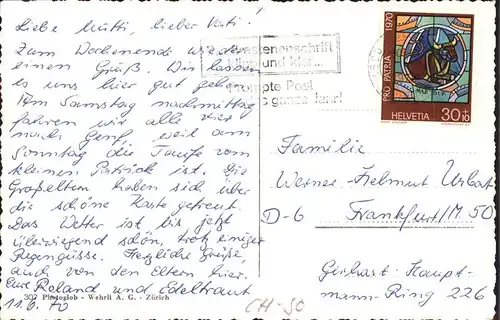 Liebe Mutti, lieber Vati!
Zum Wochenende wieder
einen Gruß. Wir lassen
es uns hier gut gehen.
Am Samstag nachmittag
fahren wir alle vier
nach Genf, weil am
Sonntag die Taufe vom
kleinen Patrick ist. Die
Großeltern haben sich über
die schöne Karte gefreut.
Das Wetter ist bis jetzt
überwiegend schön, trotz einiger
Regengüsse. Herzliche Grüße,
auch von den Eltern hier.
Eure Roland und Edeltraut
11.6.70
307 Photoglob - Wehrli A. G. - Zürich
und klar...
prompte Post
ganze Jahr!
PRO PATRIA 1970
HELVETIA 30+10
Familie
Werner-Helmut Urbat
D-6 Frankfurt/M. 50
Gerhart-Haupt-
mann-Ring 226
CH-50